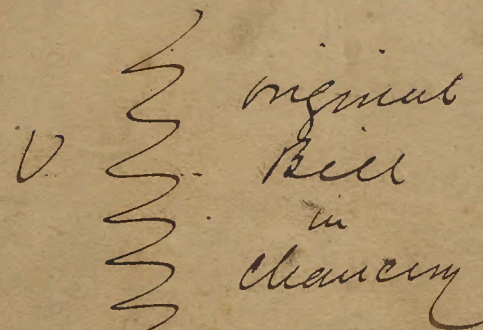 original
V Bill
in
chancery